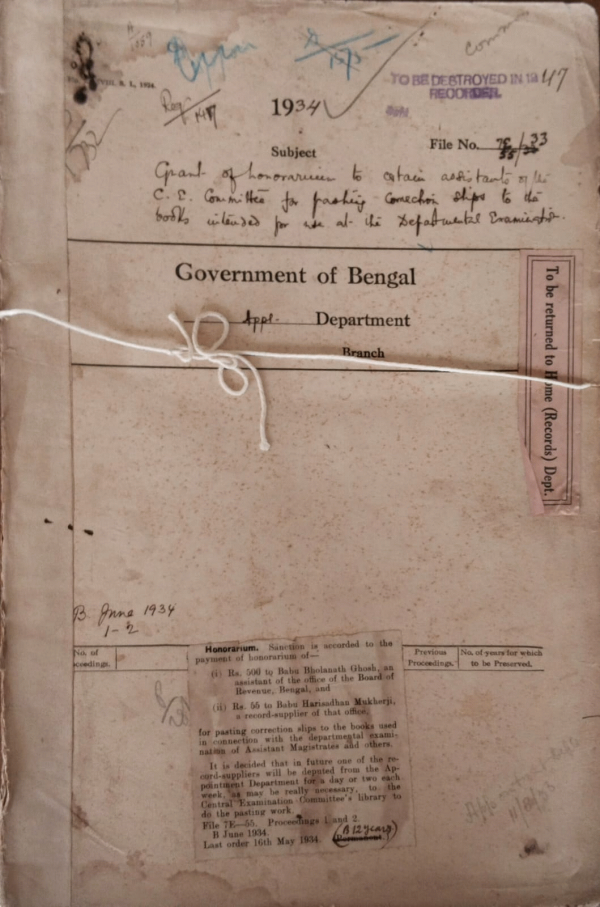 1934
TO BE DESTROYED IN 1947
RECORDER.
File No. 33
Subject
Grant of honorarium to certain assistants of the
C. E. Committee for pasting correction slips to the
books intended for use at the Departmental Examination.
Government of Bengal
Appt. Department
Branch
To be returned to Home (Records) Dept.
B June 1934
1-2
No. of
ceedings.
Previous
Proceedings.
No. of years for which
to be Preserved.
Honorarium. Sanction is accorded to the
payment of honorarium of—
(i) Rs. 500 to Babu Bholanath Ghosh, an
assistant of the office of the Board of
Revenue, Bengal, and
(ii) Rs. 55 to Babu Harisadhan Mukherji,
a record-supplier of that office,
for pasting correction slips to the books used
in connection with the departmental exami-
nation of Assistant Magistrates and others.
It is decided that in future one of the re-
cord-suppliers will be deputed from the Ap-
pointment Department for a day or two each
week, as may be really necessary, to the
Central Examination Committee's library to
do the pasting work.
File 7E—55. Proceedings 1 and 2.
B June 1934.
(B 12 years)
Last order 16th May 1934. (Permanent)